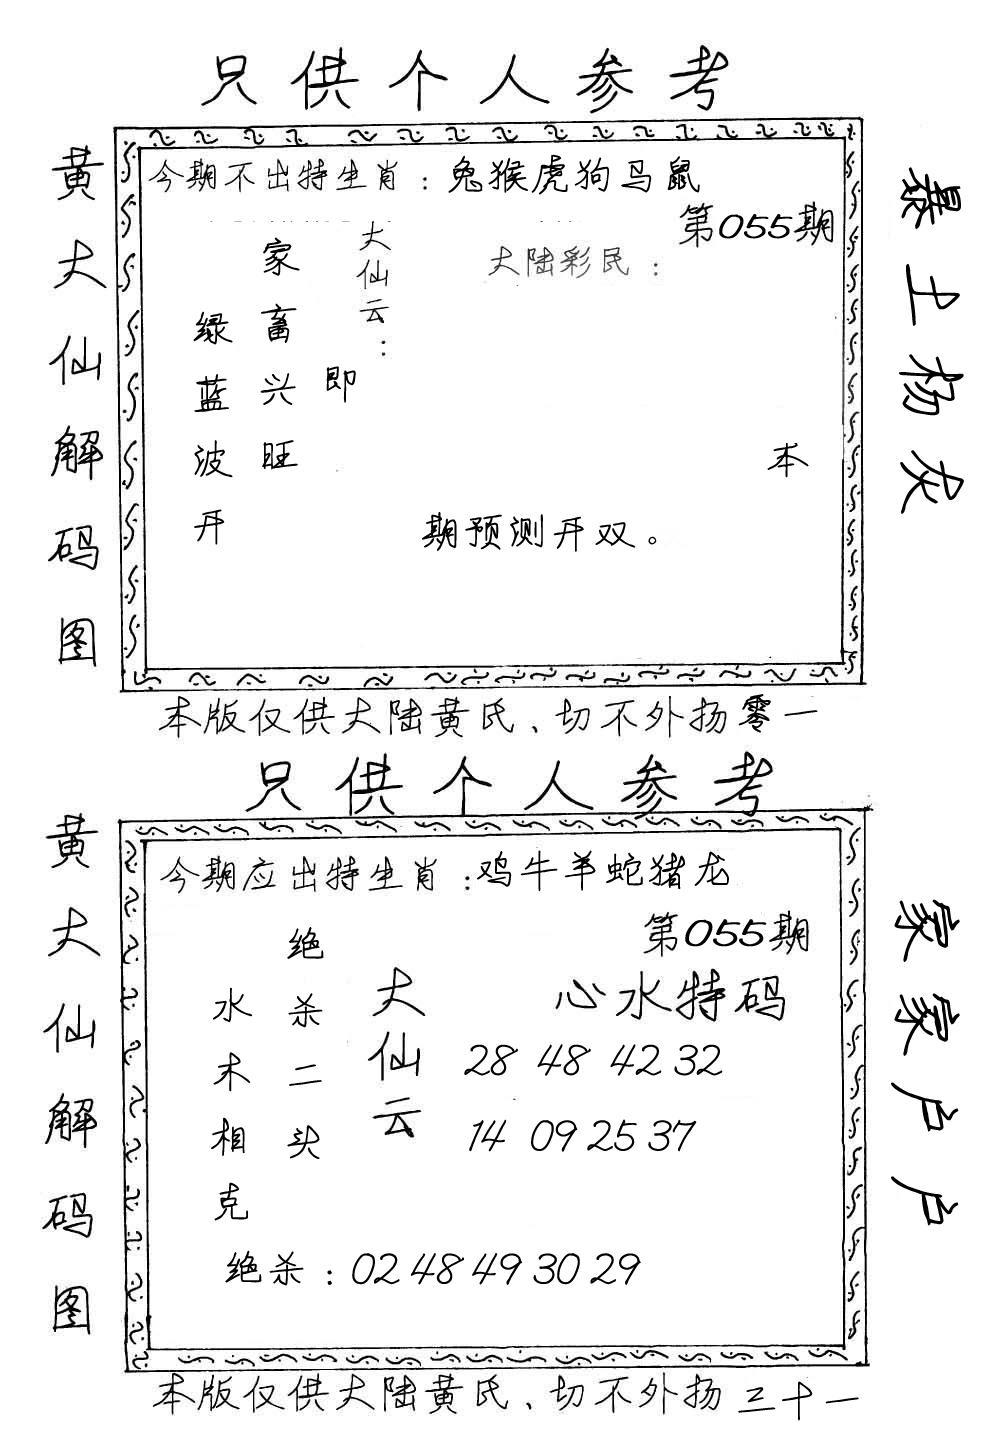 只供个人参考
黄大仙解码图
今期不出特生肖：兔猴虎狗马鼠
第055期
大陆彩民：
大仙云：
即
家畜兴旺
绿蓝波开
本
期预测开双。
暴土杨灰
本版仅供大陆黄氏、切不外扬零一
只供个人参考
黄大仙解码图
今期应出特生肖：鸡牛羊蛇猪龙
第055期
心水特码
28 48 42 32
14 09 25 37
大仙云
绝杀二头
水木相克
绝杀：02 48 49 30 29
家家户户
本版仅供大陆黄氏、切不外扬三十一